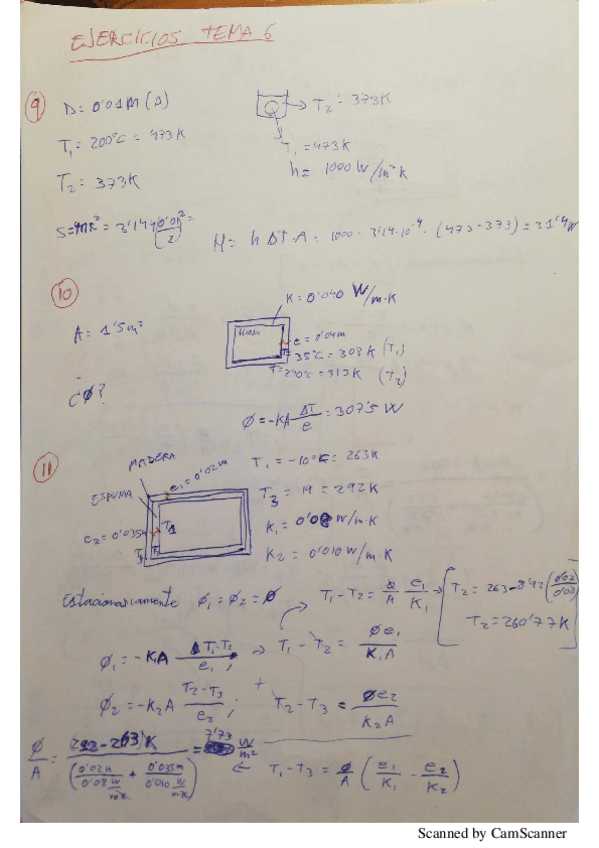 EJERCICIOS TEMA 6
9
D = 0'01m (A)
T₁ = 200°C = 473K
T₂ = 373K
S=4πR² = 3'14·4(0'01/2)² =
→ T₂ = 373K
T₁ = 473K
h = 1000 W/m²K
H = h ΔT·A = 1000 · 3'14·10⁻⁴ · (473-373) = 31'4W
10
A = 1'5m²
¿Ø?
K = 0'040 W/m·K
e = 0'04m
T = 35°C = 308K (T₁)
= 313K (T₂)
Ø = -KA ΔT/e = 307'5 W
11
MADERA
e₁ = 0'02m
ESPUMA
e₂ = 0'035m
T₁ = -10°C = 263K
T₃ = 19 = 292K
K₁ = 0'08 W/m·K
K₂ = 0'010 W/m·K
Estacionariamente Ø₁ = Ø₂ = Ø
T₁-T₂ = Ø/A e₁/K₁ →
T₂ = 263-8'92(0'02/0'08)
T₂ = 260'77K
Ø₁ = -K₁A T₁-T₂/e₁; ⇒ T₁-T₂ = Øe₁/K₁A
Ø₂ = -K₂A T₂-T₃/e₂; + T₂-T₃ = Øe₂/K₂A
Ø/A = (292-263)K / (0'02m/0'08 W/m·K + 0'035m/0'010 W/m·K) = 7'73 W/m²
⇐ T₁-T₃ = Ø/A (e₁/K₁ - e₂/K₂)
Scanned by CamScanner